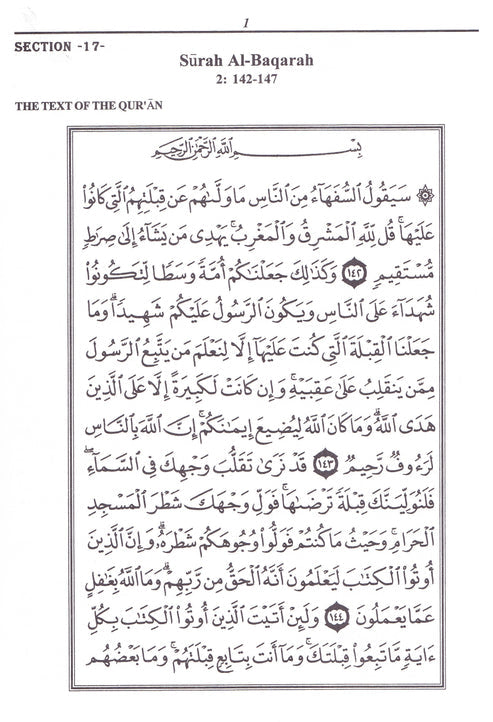 1
SECTION -17-
Sūrah Al-Baqarah
2: 142-147
THE TEXT OF THE QUR'ĀN
بِسْمِ اللَّهِ الرَّحْمَٰنِ الرَّحِيمِ
۞ سَيَقُولُ السُّفَهَاءُ مِنَ النَّاسِ مَا وَلَّىٰهُمْ عَن قِبْلَتِهِمُ الَّتِي كَانُوا۟
عَلَيْهَا ۚ قُل لِّلَّهِ الْمَشْرِقُ وَالْمَغْرِبُ ۚ يَهْدِى مَن يَشَاءُ إِلَىٰ صِرَٰطٍ
مُّسْتَقِيمٍ ١٤٢ وَكَذَٰلِكَ جَعَلْنَٰكُمْ أُمَّةً وَسَطًا لِّتَكُونُوا۟
شُهَدَاءَ عَلَى النَّاسِ وَيَكُونَ الرَّسُولُ عَلَيْكُمْ شَهِيدًا ۗ وَمَا
جَعَلْنَا الْقِبْلَةَ الَّتِي كُنتَ عَلَيْهَا إِلَّا لِنَعْلَمَ مَن يَتَّبِعُ الرَّسُولَ
مِمَّن يَنقَلِبُ عَلَىٰ عَقِبَيْهِ ۚ وَإِن كَانَتْ لَكَبِيرَةً إِلَّا عَلَى الَّذِينَ
هَدَى اللَّهُ ۗ وَمَا كَانَ اللَّهُ لِيُضِيعَ إِيمَٰنَكُمْ ۚ إِنَّ اللَّهَ بِالنَّاسِ
لَرَءُوفٌ رَّحِيمٌ ١٤٣ قَدْ نَرَىٰ تَقَلُّبَ وَجْهِكَ فِي السَّمَاءِ ۖ
فَلَنُوَلِّيَنَّكَ قِبْلَةً تَرْضَىٰهَا ۚ فَوَلِّ وَجْهَكَ شَطْرَ الْمَسْجِدِ
الْحَرَامِ ۚ وَحَيْثُ مَا كُنتُمْ فَوَلُّوا۟ وُجُوهَكُمْ شَطْرَهُ ۗ وَإِنَّ الَّذِينَ
أُوتُوا۟ الْكِتَٰبَ لَيَعْلَمُونَ أَنَّهُ الْحَقُّ مِن رَّبِّهِمْ ۗ وَمَا اللَّهُ بِغَٰفِلٍ
عَمَّا يَعْمَلُونَ ١٤٤ وَلَئِنْ أَتَيْتَ الَّذِينَ أُوتُوا۟ الْكِتَٰبَ بِكُلِّ
ءَايَةٍ مَّا تَبِعُوا۟ قِبْلَتَكَ ۚ وَمَا أَنتَ بِتَابِعٍ قِبْلَتَهُمْ ۚ وَمَا بَعْضُهُم